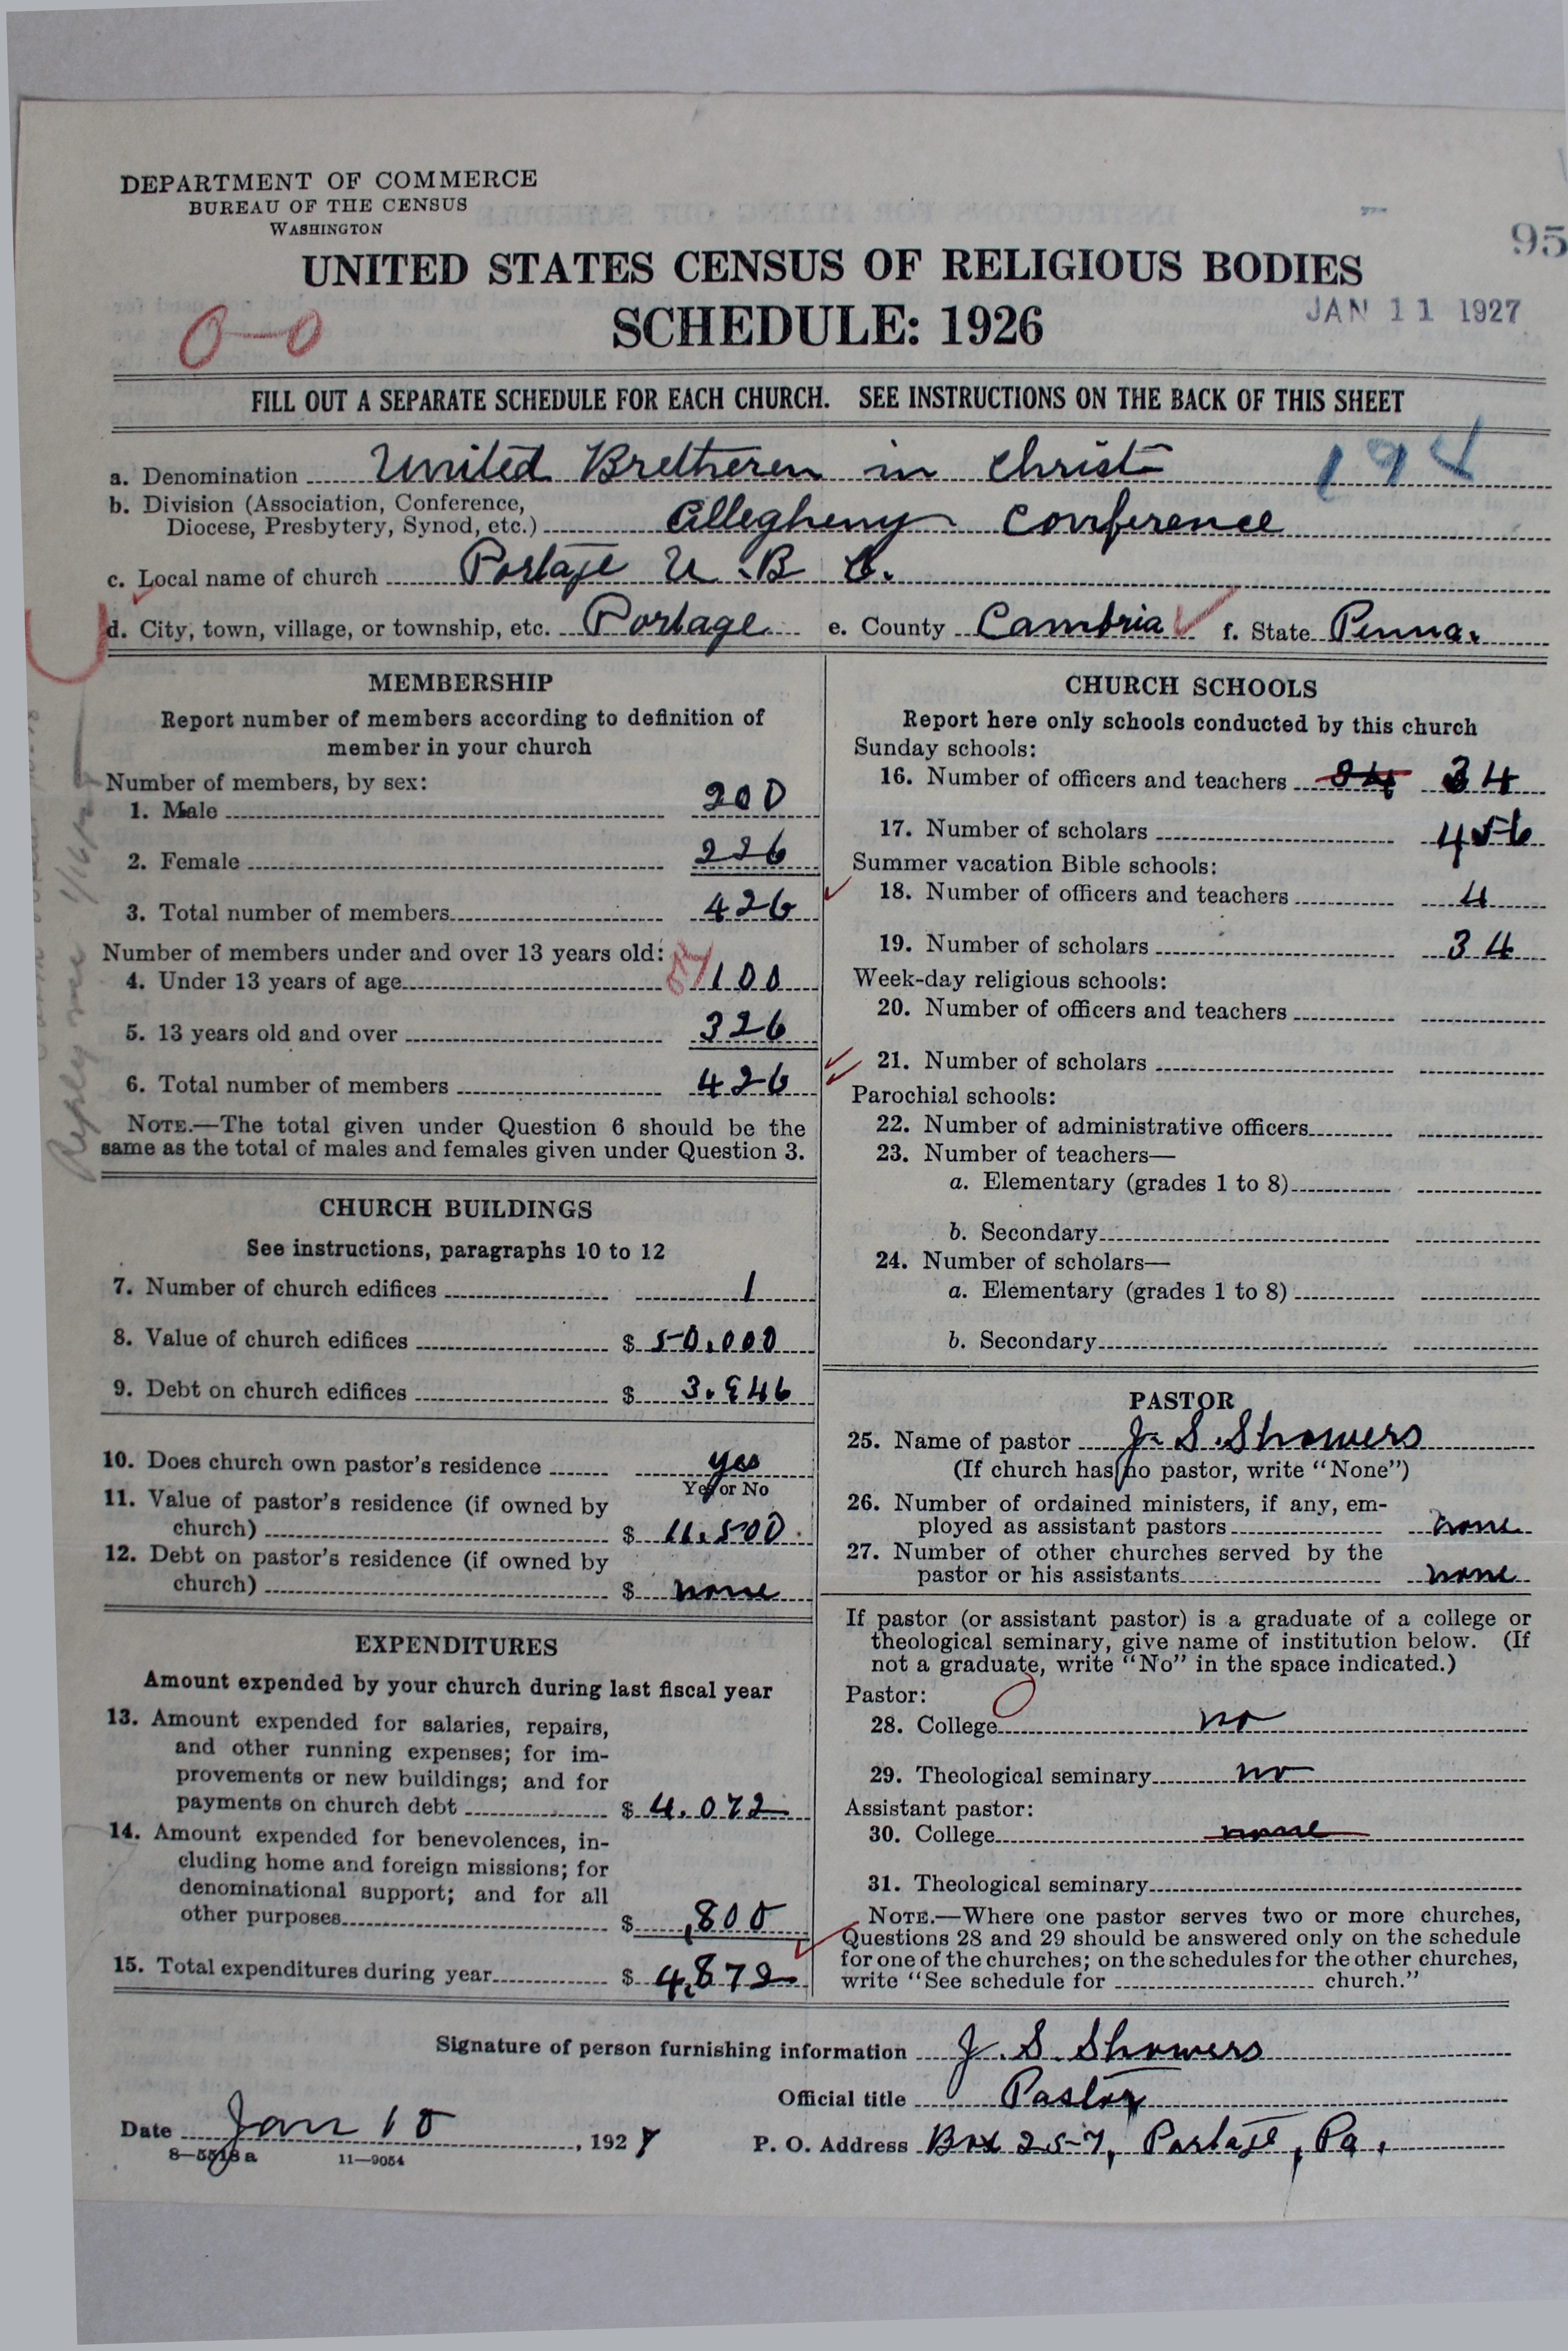 DEPARTMENT OF COMMERCE
BUREAU OF THE CENSUS
WASHINGTON
95
UNITED STATES CENSUS OF RELIGIOUS BODIES
SCHEDULE: 1926
JAN 11 1927
0-0
FILL OUT A SEPARATE SCHEDULE FOR EACH CHURCH. SEE INSTRUCTIONS ON THE BACK OF THIS SHEET
a. Denomination United Bretheren in Christ
b. Division (Association, Conference,
Diocese, Presbytery, Synod, etc.) Allegheny Conference
c. Local name of church Portage U. B C.
d. City, town, village, or township, etc. Portage e. County Cambria f. State Penna.
MEMBERSHIP
Report number of members according to definition of
member in your church
Number of members, by sex:
1. Male 200
2. Female 226
3. Total number of members 426
Number of members under and over 13 years old:
4. Under 13 years of age 100
5. 13 years old and over 326
6. Total number of members 426
NOTE.—The total given under Question 6 should be the
same as the total of males and females given under Question 3.
CHURCH BUILDINGS
See instructions, paragraphs 10 to 12
7. Number of church edifices 1
8. Value of church edifices $ 50,000
9. Debt on church edifices $ 3.946
10. Does church own pastor's residence yes
Yes or No
11. Value of pastor's residence (if owned by
church) $ 11.500.
12. Debt on pastor's residence (if owned by
church) $ none
EXPENDITURES
Amount expended by your church during last fiscal year
13. Amount expended for salaries, repairs,
and other running expenses; for im-
provements or new buildings; and for
payments on church debt $ 4.072
14. Amount expended for benevolences, in-
cluding home and foreign missions; for
denominational support; and for all
other purposes $ ,800
15. Total expenditures during year $ 4,872
CHURCH SCHOOLS
Report here only schools conducted by this church
Sunday schools:
16. Number of officers and teachers 34 34
17. Number of scholars 456
Summer vacation Bible schools:
18. Number of officers and teachers 4
19. Number of scholars 34
Week-day religious schools:
20. Number of officers and teachers
21. Number of scholars
Parochial schools:
22. Number of administrative officers
23. Number of teachers—
a. Elementary (grades 1 to 8)
b. Secondary
24. Number of scholars—
a. Elementary (grades 1 to 8)
b. Secondary
PASTOR
25. Name of pastor J. S. Showers
(If church has no pastor, write "None")
26. Number of ordained ministers, if any, em-
ployed as assistant pastors none
27. Number of other churches served by the
pastor or his assistants none
If pastor (or assistant pastor) is a graduate of a college or
theological seminary, give name of institution below. (If
not a graduate, write "No" in the space indicated.)
Pastor:
28. College no
29. Theological seminary no
Assistant pastor:
30. College none
31. Theological seminary
NOTE.—Where one pastor serves two or more churches,
Questions 28 and 29 should be answered only on the schedule
for one of the churches; on the schedules for the other churches,
write "See schedule for church."
Signature of person furnishing information J. S. Showers
Official title Pastor
Date Jan 10, 1927
P. O. Address Box 257, Portage, Pa.
8—5518a 11—9054